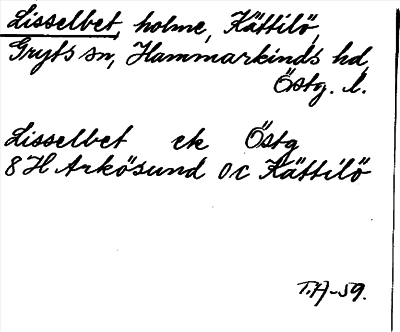 Lisselbet, holme, Kättilö,
Gryts sn, Hammarkinds hd,
Östg. l.
Lisselbet ek Östg
8 H Arkösund 0 c Kättilö
T.H-59.